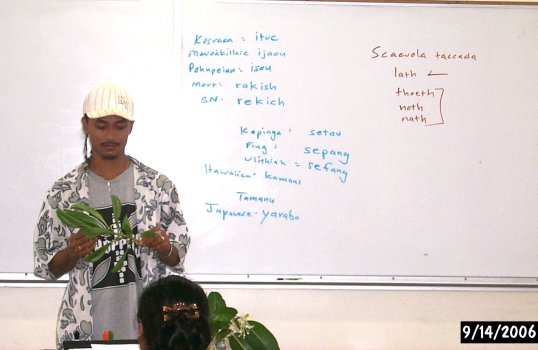 Kosraen : ituc
ijaou
Pohnpeian : isou
Mort : rakish
SN - rekich
Kapinga : setau
Ping : sepang
Ulithian : sefang
Hawaiian - Kamani
Tamanu
Japanese - yarabo
Scaevola taccada
lath ←
thoeth
noth
nath
9/14/2006